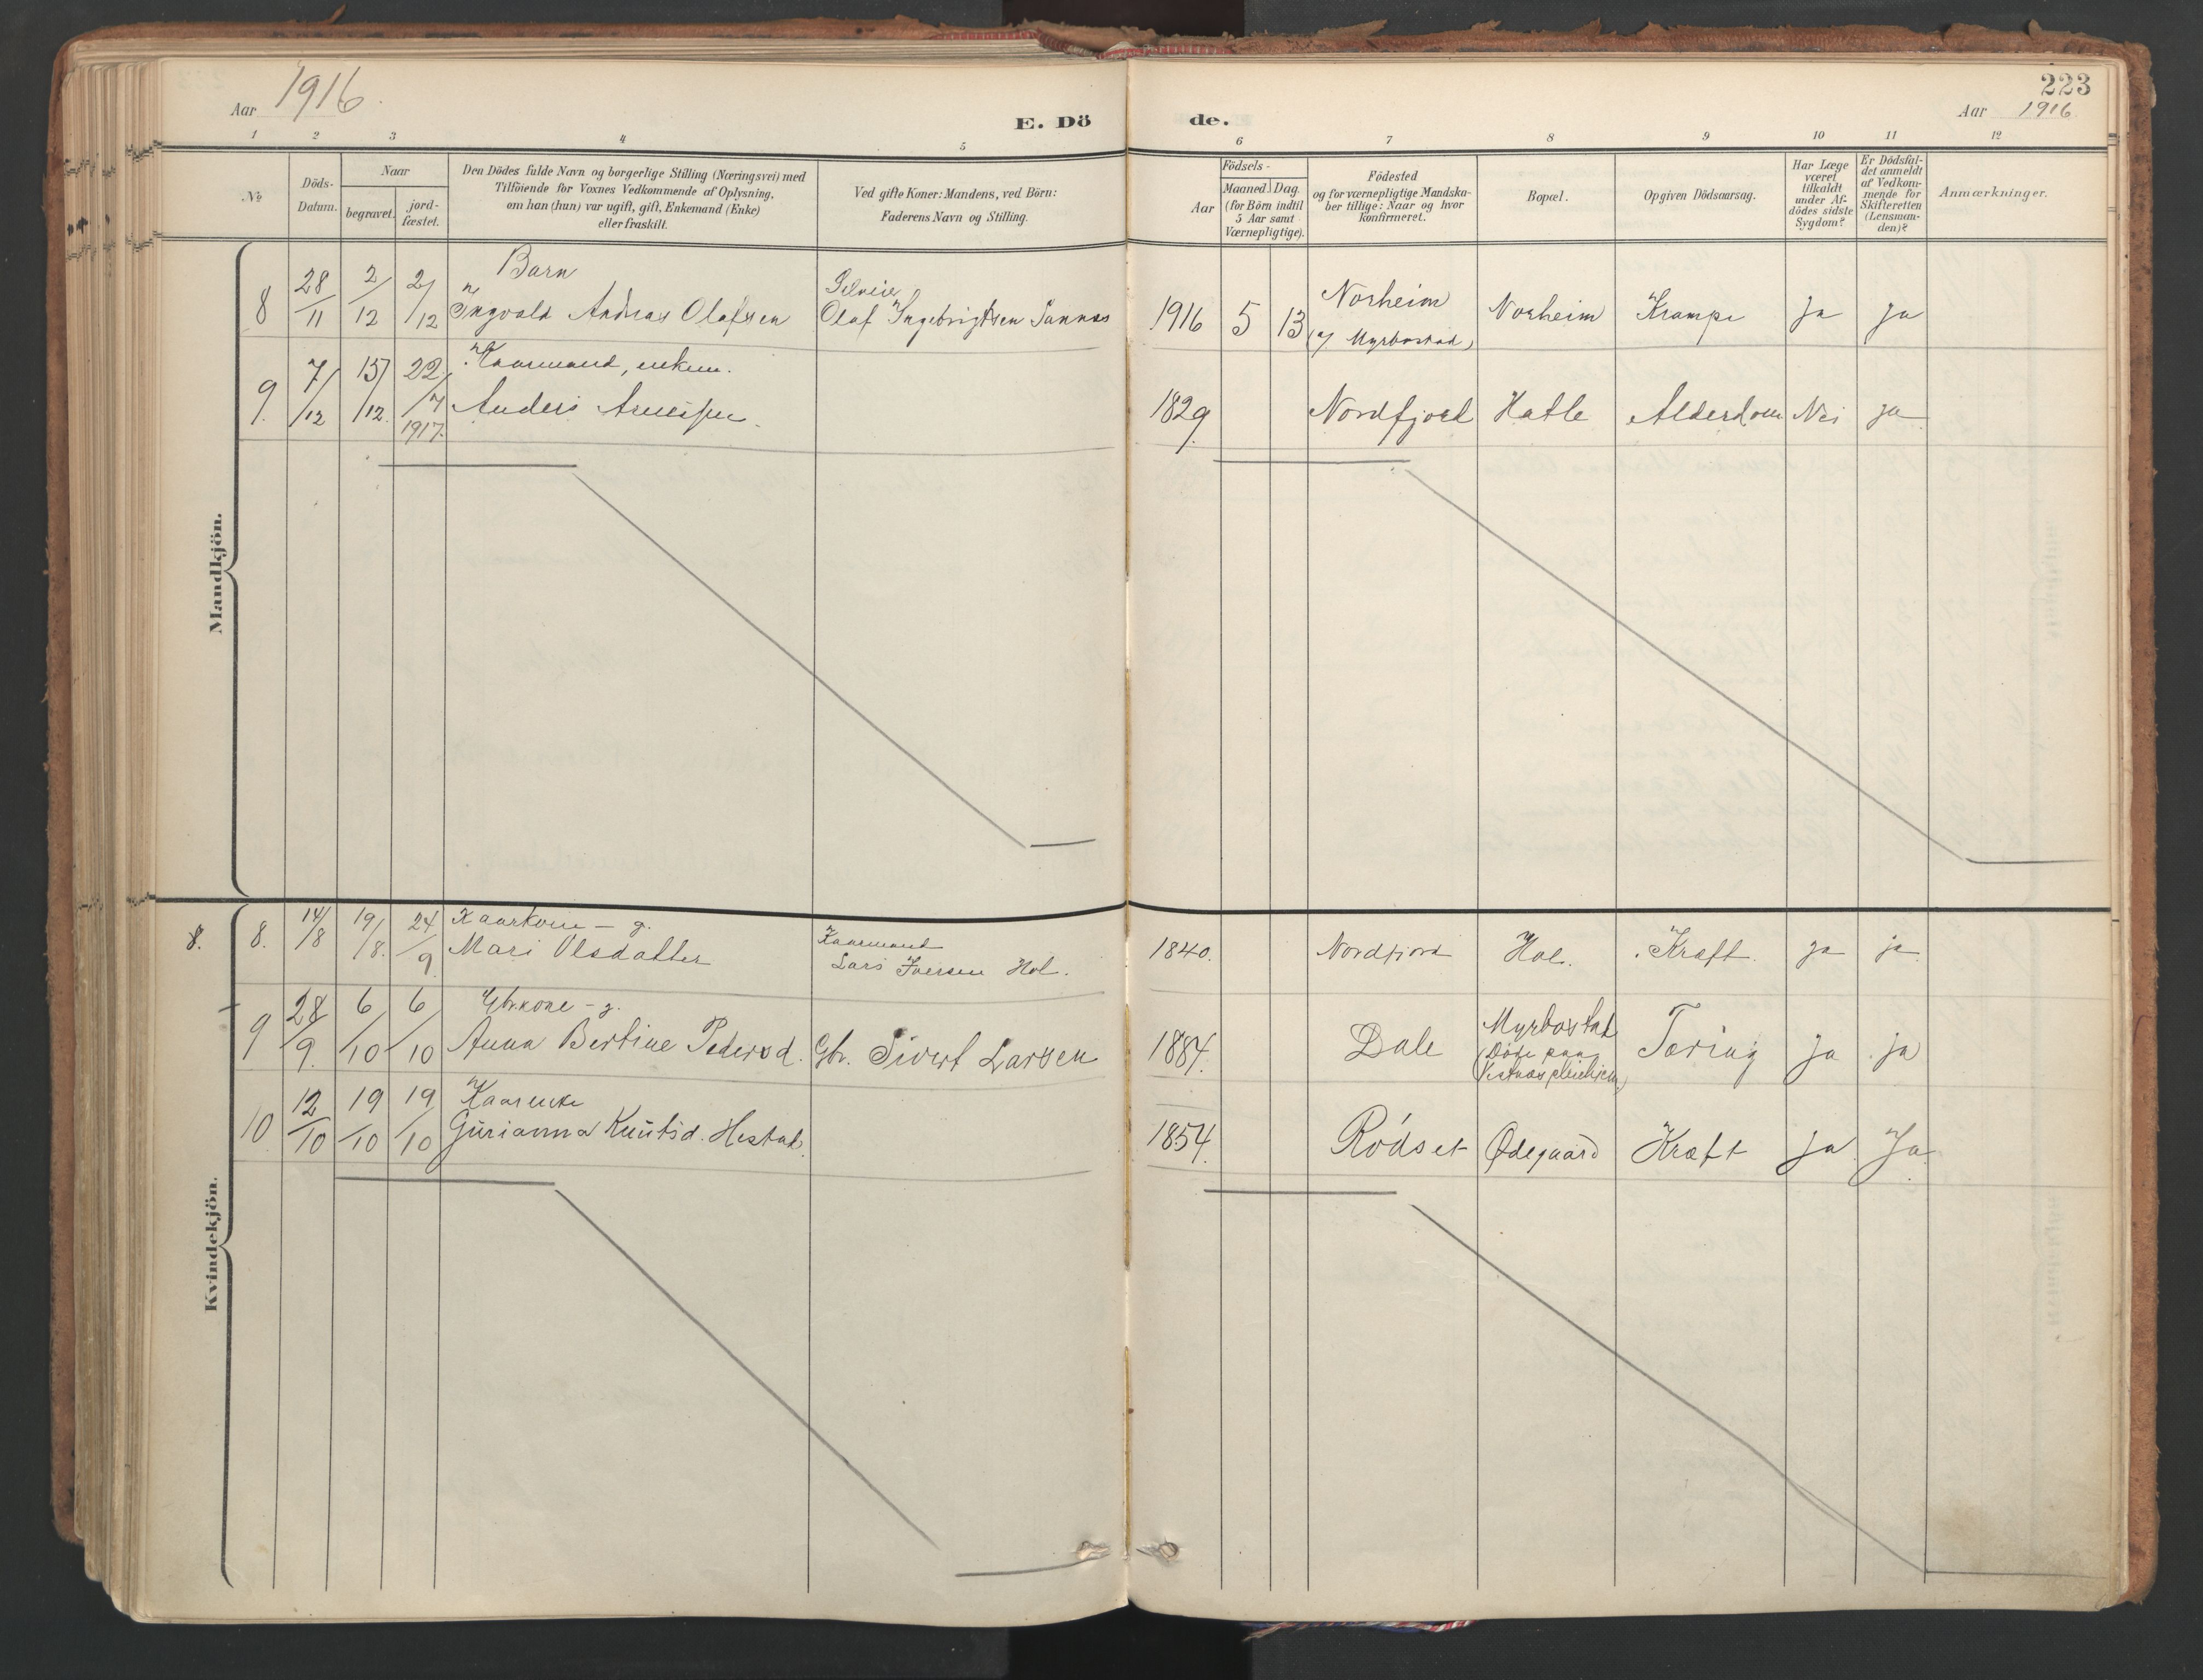 Aar 1916.
E. Dö
de.
223
Aar 1916
1 2 3 4 5
6 7 8 9 10 11 12
No
Döds-
Datum.
Naar
begravet.
jord-
fæstet.
Den Dödes fulde Navn og borgerlige Stilling (Næringsvei) med
Tilföiende for Voxnes Vedkommende af Oplysning,
om han (hun) var ugift, gift, Enkemand (Enke)
eller fraskilt.
Ved gifte Koner: Mandens, ved Börn:
Faderens Navn og Stilling.
Födsels-
Aar
Maaned Dag.
(for Börn indtil
5 Aar samt
Værnepligtige).
Födested
og for værnepligtige Mandska-
ber tillige: Naar og hvor
konfirmeret.
Bopæl.
Opgiven Dödsaarsag.
Har Læge
været
tilkaldt
under Af-
dödes sidste
Sygdom?
Er Dödsfal-
det anmeldt
af Vedkom-
mende for
Skifteretten
(Lensman-
den)?
Anmærkninger.
Mandkjön.
Barn
8 28/11 2/12 2/12 Ingvald Andreas Olafsen
Selveier
Olaf Ingebrigtsen Sannes
1916 5 13 Norheim
(af Myrbostad)
Norheim Krampe Ja ja
Kaarmand, enkem.
9. 7/12 15/12. 22/4 1917. Anders Arnesen.
1829 Nordfjord Hatle Alderdom Nei ja
Kvindekjön.
Kaarkone - g.
8. 8. 14/8 19/8. 24/9 Mari Olsdatter
Kaarmand
Lars Iversen Hol.
1840. Nordfjord Hol. Kræft. ja ja
Gbr.kone - g.
9 28/9. 6/10 6/10 Anna Bertine Pedersd. Gbr. Sivert Larsen
1884. Dale Myrbostad
(Döde paa
Vestnes pleiehjem)
Tæring ja ja
Kaarenke
10 12/10 19/10 19/10 Gurianna Knutsd. Hestad.
1854. Rödset Ødegaard Kræft ja Ja.